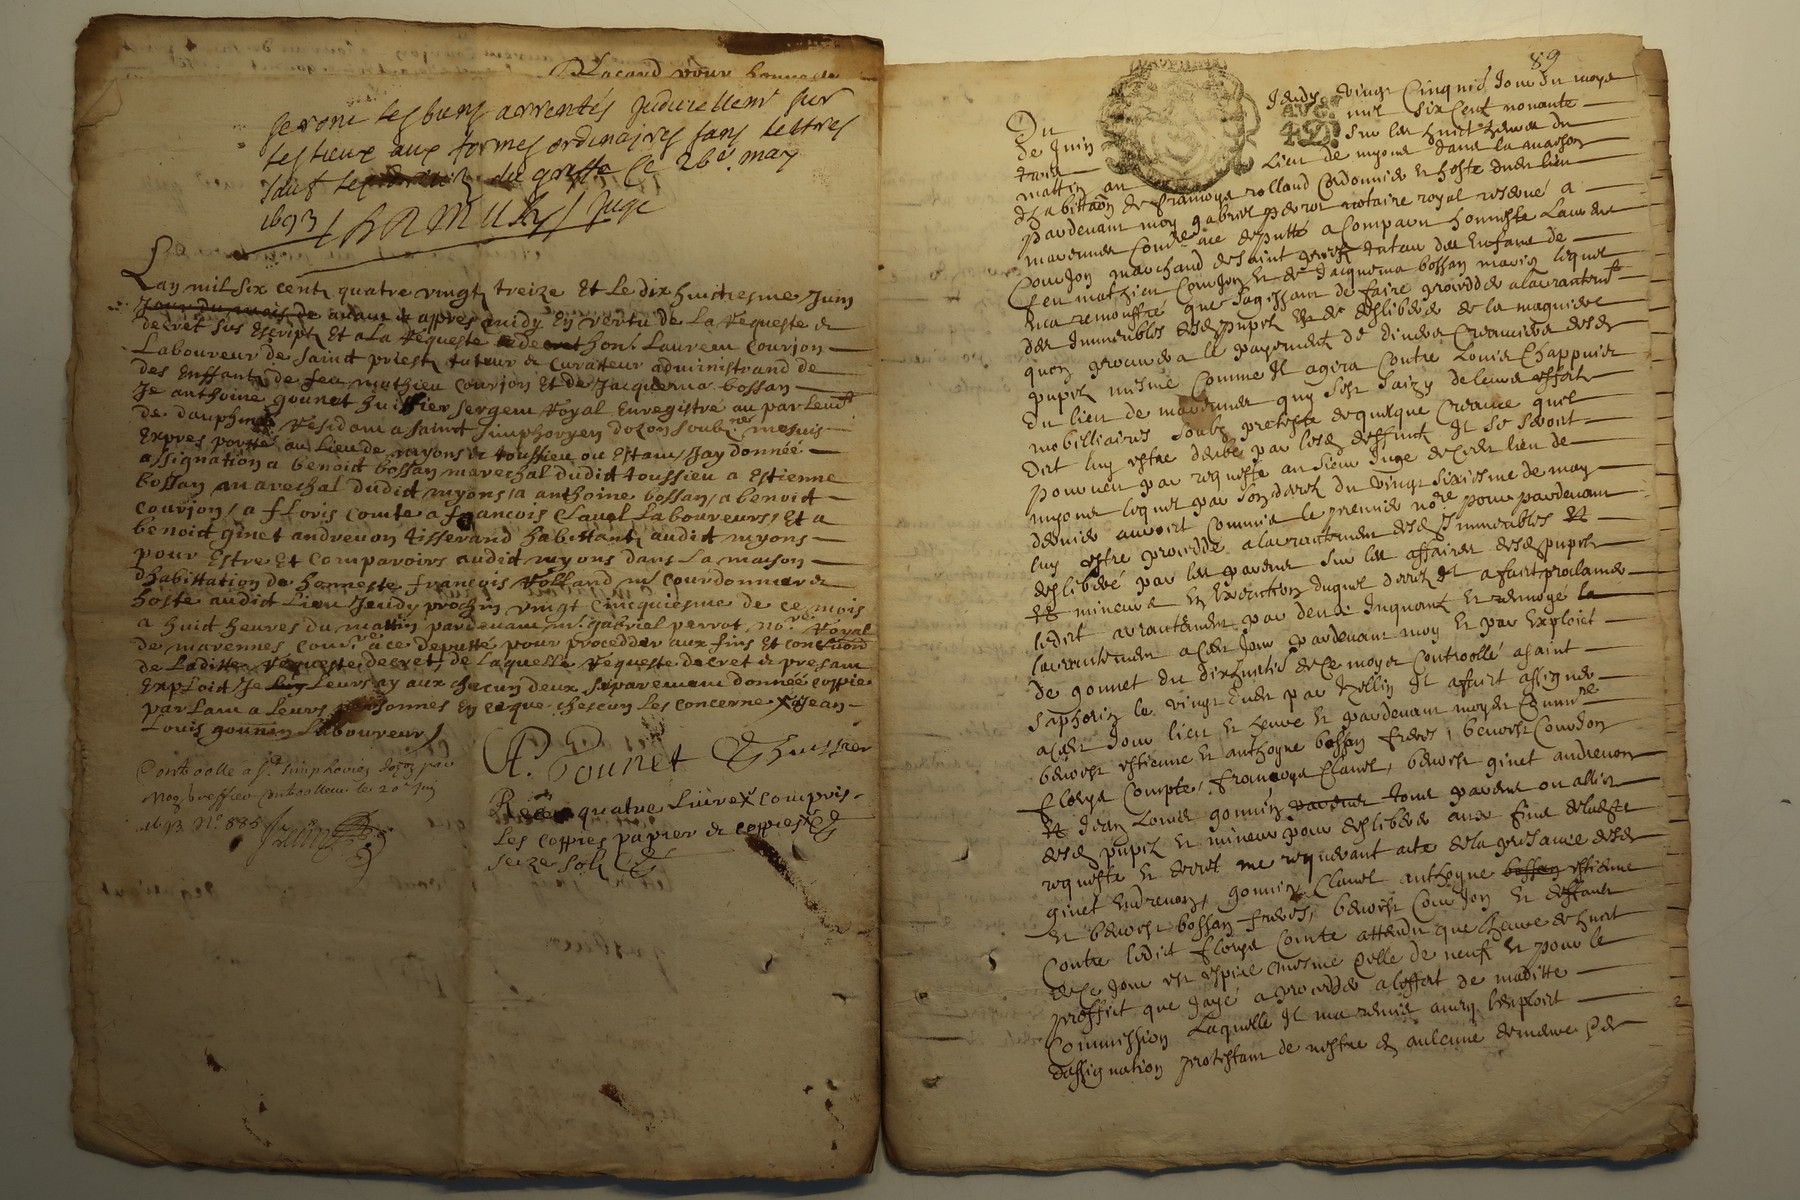 Placard pour honneste
seront les biens arrentés judiciellemt sur
les lieux aux formes ordinaires sans lettres
sauf du greffe ce 26e may
1693 juge
Lan mil six centz quatre vingtz treize Et Le dix huictiesme Juin
avant et appres midy En vertu de La Requeste et
decret sus Escript Et a La Requeste de hon. Laurent Courjon
Laboureur de Saint priest tuteur et Curatteur administrand de
des Enffantz de feu mathieu Courjon Et de Jacquema bossan
Je anthoine gounet huissier sergent Royal Enregistré au parlemt
de dauphiné Residant a Saint Simphoryen dozon soubz.nes mesuis
Expres porttés au Lieu de myons et toussieu ou Estant Jay donnéé
assignation a benoict bossan marechal dudict toussieu a Estienne
bossan marechal dudict myons, a anthoine bossan, a benoict
courjon, a floris comte a françois Clavel Laboureurs, Et a
benoict ginet andrevon tisserand habittantz audict myons
pour Estre Et comparoirs audict myons dans La maison
dhabittation de honneste françois Rolland mr courdonnier et
hoste audict Lieu Jeudy prochin vingt cincquiesme de ce mois
a huict heures du mattin pardevant mr gabriel perrot, no.re Royal
de marennes com.re a ce deputté pour procedder aux fins Et
de Laditte Requeste decret, de Laquelle Requeste decret et presant
Exploict Je Leurs ay aux chacun deux separement donnéé coppie
parlant a Leurs personnes En ce que chescun Les concerne Jean
Louis gounin Labourreur
A. Gounet huissier
Controollé a St Simphorien dozon par
moy greffier controolleur le 20e juin
1693 No 885
Receu quatre Livres compris
Les coppies papier et coppies
seize solz
89
Du Jeudy vingt Cinquie Jour du moys
de Juin mil six Cent nonante
trois sur les huict heures du
mattin au Lieu de myons dans la maison
dhabittaon de françoys rolland Cordonnier et hoste dudt lieu
pardevant moy gabriel perrot notaire royal reservé a
marennes Comre a ce deputté a Comparu honneste Laurens
Courjon marchand de saint priest tuteur des Enfans de
feu mathieu Courjon Et de Jacquema bossan mariez lequel
ma remonstré que sagissant de faire procedder a larrantemt
des Immeubles desd pupilz Et de deslibérer de la maniere
quon prouvera le payement de divers Creanciers desd
pupilz mesme Comme Il agira Contre Louis Chappuier
du lieu de marennes quy sest saizy de leurs effectz
mobilliaires soubz pretexte de quelque Creance quil
dict luy estre deube par lesd deffuntz Il se seroit
pourveu par requeste au sieur Juge de Cedt lieu de
myons lequel par son decret du vingt sixiesme de may
dernier auroict Commis le premier no.re pour pardevant
luy estre procedde a larrantement desd Immeubles Et
deslibéré par les parens sur les affaires desd pupilz
Et mineurs En Execution duquel decret Il a faict proclamer
ledict arrantement par deux Inquantz Et renvoyé la
larrantement a Cedt Jour pardevant moy Et par Exploict
de gounet du dixhuictie de Ce moys Controollé a saint
saphorin le vingt Il a faict assigner
a Cedt Jour lieu Et heure Et pardevant moydt Commre
benoist estienne Et anthoyne bossan freres, benoist Courdon
florys Compte, françoys Clavel, benoist ginet andrevon
Et Jean Louis gounin tous parens ou alliez
desd pupilz Et mineurs pour deslibérer aux fins de ladte
requeste Et decret me requerant acte de la presance desd
ginet Andrevon, gounin, Clavel anthoyne bossan estienne
Et benoist bossan freres, benoist Courdon Et deffaut
Contre ledict florys Comte attendu que lheure de huict
de Ce Jour est expirée mesme Celle de neuf Et pour le
proffict que Jaye a procedder a leffect de maditte
Commission Laquelle Il ma remis avecq lexploict
dassignation protestant de nestre En aulcune demeure